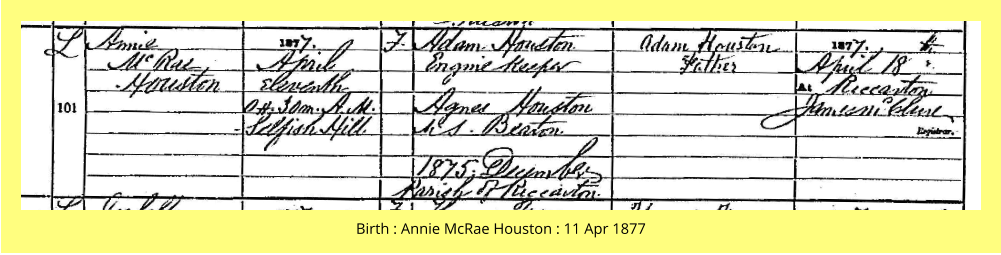 L
Annie
McRae
Houston
101
1877.
April
Eleventh
0 H. 30 m. A.M.
Selfish Hill
F.
Adam Houston
Engine Keeper
Agnes Houston
M.S. Beaton
1875, December
Parish of Riccarton
Adam Houston
Father
1877.
April 18
At Riccarton
James McClure
Registrar.
L
Birth : Annie McRae Houston : 11 Apr 1877